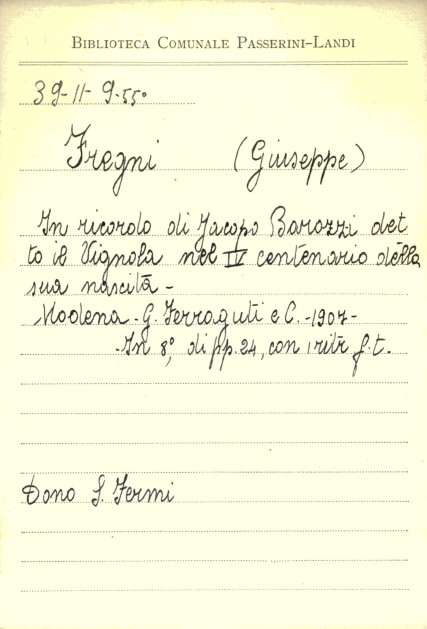 BIBLIOTECA COMUNALE PASSERINI-LANDI
39-11-9-55°
Fregni (Giuseppe)
In ricordo di Jacopo Barozzi det
to il Vignola nel IV centenario della
sua nascita -
Modena - G. Ferraguti e C. - 1907 -
- In 8°, di pp. 24, con 1 ritr f. t.
Dono S. Fermi